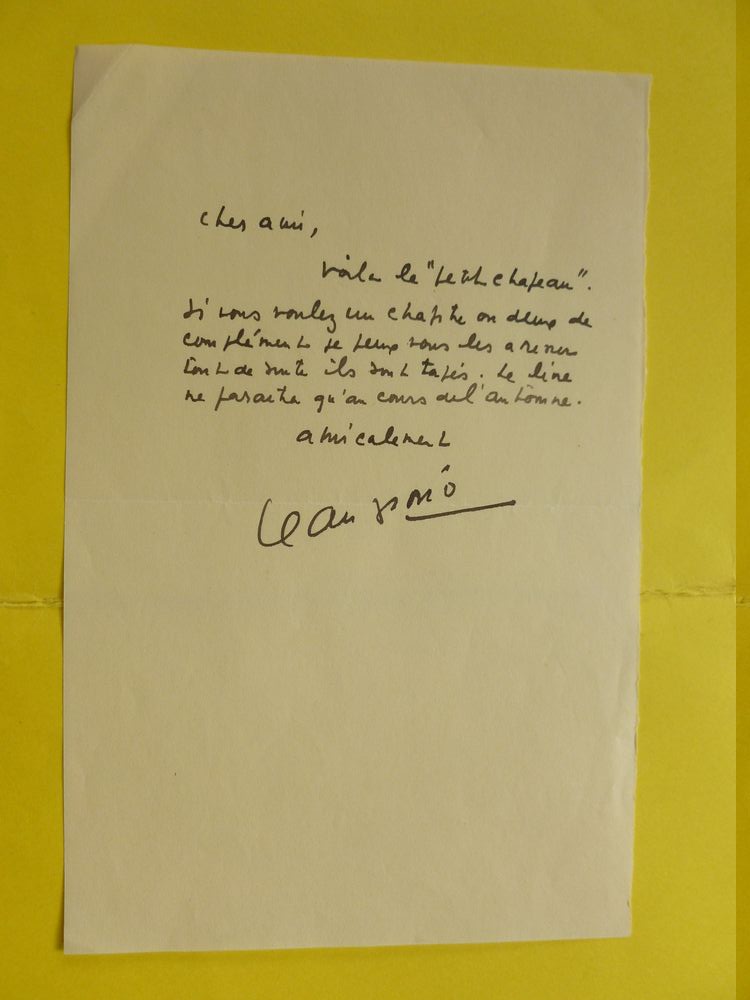 cher ami,
voila le "petit chapeau".
Si vous voulez un chapitre ou deux de
complément je peux vous les
tout de suite ils sont tapés. Le livre
ne paraitra qu'au cours de l'automne.
amicalement
Jean Giono